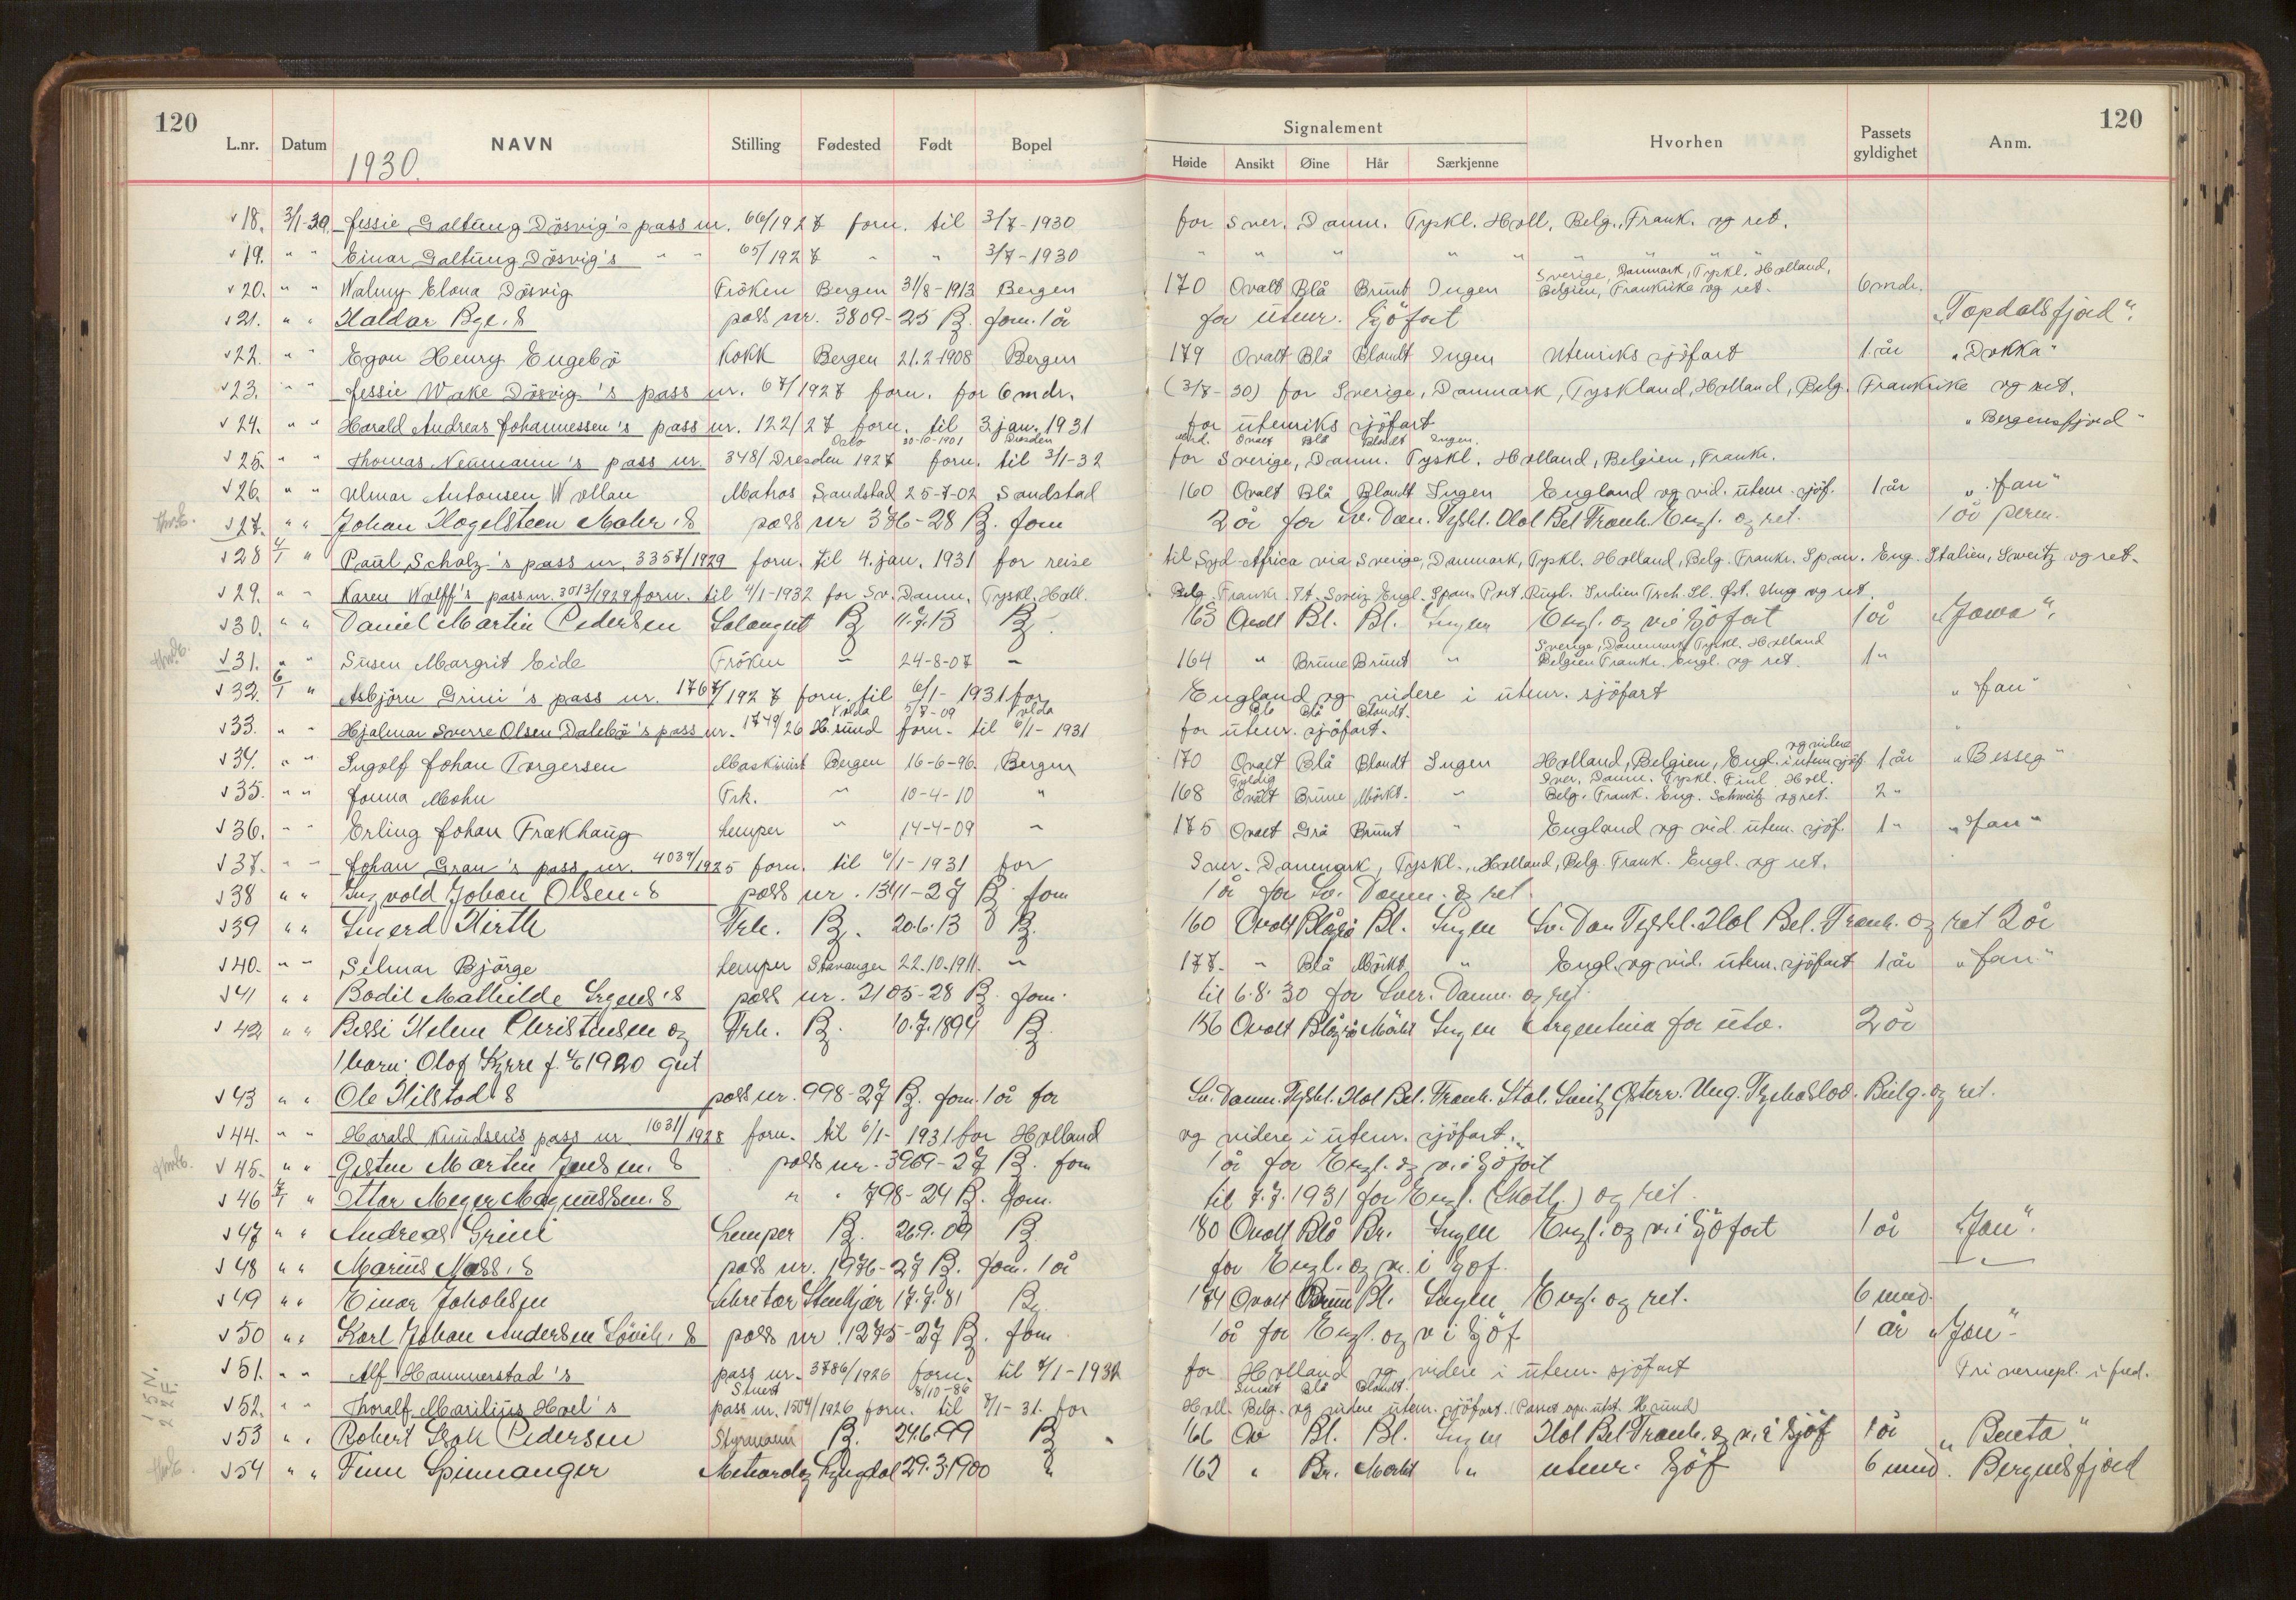 120 120
L.nr. Datum NAVN Stilling Fødested Født Bopel Signalement Hvorhen Passets gyldighet Anm.
Høide Ansikt Øine Hår Særkjenne
1930.
18. 3/1-30. Jessie Galtung Dösvig's pass nr. 66/1927 forn. til 3/7-1930 for Sver. Danm. Tyskl. Holl, Belg., Frank. og ret.
19. " " Einar Galtung Dösvig's " " 65/1927 " " 3/7-1930 " " " " " " "
20. " " Walmy Elona Dösvig Fröken Bergen 31/8-1913 Bergen 170 Ovalt Blå Brunt Ingen Sverige, Danmark, Tyskl. Holland, Belgien, Frankrike og ret. 6 mdr.
21. " " Haldor Bye.s pass nr. 3809-25 B. forn. 1 år for utenr. sjöfart „Topdalsfjord“.
22. " " Egon Henry Engebö Kokk Bergen 21.2-1908 Bergen 179 Ovalt Blå Blondt Ingen Utenriks sjöfart 1 år „Dokka“
23. " " Jessie Wake Dösvig's pass nr. 67/1927 forn. for 6 mdr. (3/7-30) for Sverige, Danmark, Tyskland, Holland, Belg. Frankrike og ret.
24. " " Harald Andreas Johannessen's pass nr. 122/27 forn. til 3 jan. 1931 for utenriks sjöfart „Bergensfjord“
Oslo 30-10-1901 Dresden Ovalt Blå Blondt Ingen.
25. " " Thomas Neumann's pass nr. 348/Dresden 1927 forn. til 3/1-32 for Sverige, Danm. Tyskl. Holland, Belgien, Frankr.
26. " " Ulmar Antonsen Wollan Matros Sandstad 25-7-02 Sandstad 160 Ovalt Blå Blondt Ingen England og vid. utenr. sjöf. 1 år „Jan“
27. " " Johan Hagelsteen Mohr.s pass nr 376-28 B. forn 2 år for Sv. Dan. Tyskl. Hol Bel Frank. Engl. og ret. 1 år perm.
28 4/1 " Paul Scholz's pass nr. 3357/1929 forn. til 4. jan. 1931 for reise til Syd-Africa via Sverige, Danmark, Tyskl. Holland, Belg. Frankr. Span. Eng. Italien, Sweitz og ret.
29. " " Karen Wolff's pass nr. 3013/1929 forn. til 4/1-1932 for Sv. Danm. Tyskl. Holl. Belg. Frankr. It. Sveiz Engl. Span. Port. Rusl. Indien Tsch. Sl. Øst. Ung og ret.
30. " " Daniel Martin Pedersen Salongut B 11.7.13 B. 163 Ovalt Bl. Bl. Ingen Engl. og v i sjöfart 1 år „Jowa“.
31. " " Susen Margrit Eide Fröken " 24-8-07 " 164 " Brune Brunt " Sverige, Danmark, Tyskl. Holland Belgien Frankr. Engl. og ret. 1 "
32. 6/1 " Asbjörn Grini's pass nr. 1767/1927 forn. til 6/1-1931 for England og videre i utenr. sjöfart „Jan“
Volda 5/7-09 Volda Blå Blondt.
33. " " Hjalmar Sverre Olsen Dalebö's pass nr. 1749/26 H.sund forn. til 6/1-1931 for utenr. sjöfart.
34. " " Ingolf Johan Torgersen Maskinist Bergen 16-6-96. Bergen 170 Ovalt Blå Blondt Ingen Holland, Belgien, Engl. og videre i utenr sjöf. 1 år „Besseg“
35. " " Jonna Mohn Frk. " 10-4-10 " 168 Fyldig Ovalt Brune Mörkt. " Sver. Danm. Tyskl. Finl. Holl. Belg. Frank. Eng. Schweitz og ret. 2 "
36. " " Erling Johan Frækhaug Lemper " 14-4-09 " 175 Ovalt Grå Brunt " England og vid. utenr. sjöf. 1 " „Jan“
37. " " Johan Gran's pass nr. 4039/1925 forn. til 6/1-1931 for Sver. Danmark, Tyskl., Holland, Belg. Frank. Engl. og ret.
38 " " Ingvold Johan Olsen.s pass nr. 1341-27 B. forn 1 år for Sv. Danm. og ret.
39 " " Hirth Frk. B. 20.6.13 B. 160 Ovalt Blågrå Bl. Ingen Sv. Dan Tyskl. Hol Bel. Frank. og ret 2 år
40. " " Selmar Bjørge Lemper Stavanger 22.10.1911. " 177. " Blå Mörkt " Engl. og vid. utenr. sjöfart 1 år „Jan“
41 " " Bodil Mathilde Irgens.s pass nr. 2105-28 B. forn. til 6.8.30 for Sver. Danm. og ret.
42 " " Bessi Helene Christensen og Frk. B. 10.7.1894 B. 156 Ovalt Blågrå Mörkt Ingen Argentina for utv. 2 år
1 barn: Olaf Kyrre f. 1920 gut
43 " " Ole Hilstad.s pass nr. 998-27 B. forn. 1 år for Sv. Danm. Tyskl. Hol Bel. Frank. Ital. Sveitz Østerr. Ung. Tyskoslov. Bulg. og ret.
44. " " Harald Knudsen's pass nr 1631/1928 forn. til 6/1-1931 for Holland og videre i utenr. sjöfart.
45. " " Gösten Martin Jensen.s pass nr. 3969-27 B. forn 1 år for Engl. og v i sjöfart
46 7/1 " Ottar Meyer Magnussen.s " " 798-24 B. forn. til 7.7.1931 for Engl. (Skotl.) og ret.
47 " " Andreas Grini Lemper B. 26.9.09 B. 180 Ovalt Blå Br. Ingen Engl. og v. i sjöfart 1 år „Jan“.
48 " " Marius Ness.s pass nr. 1976-27 B. forn. 1 år for Engl. og v. i sjöf. "
49 " " Einar Jakobsen Sekretær Stenkjær 17.7.81 B. 174 Ovalt Brune Bl. Ingen Engl. og ret. 6 mnd.
50 " " Karl Johan Andersen Lövik.s pass nr. 1275-27 B. forn 1 år for Engl. og v i sjöf 1 år „Jan“
51. " " Alf Hammerstad's pass nr. 3786/1926 forn. til 7/1-1932 for Holland og videre i utenr. sjöfart Fri vernepl. i fred.
Stuert 8/10-86 Smalt Blå Blondt.
52. " " Thoralf Marilius Hoel's pass nr. 1504/1926 forn. til 7/1-31. for Holl. Belg. og videre utenr. sjöfart. (Passet opr. utst. H.sund)
53 " " Robert Pedersen Styrmann B. 24.6.99 B. 166 Ov Bl. Bl. Ingen Hol Bel Frank. og v. i sjöf 1 år „Benta“
54 " " Finn Spinnanger Meteorolog Lyngdal 29.3.1900 " 162 " Br. Mörkt " utenr. sjöf 6 mnd. Bergensfjord